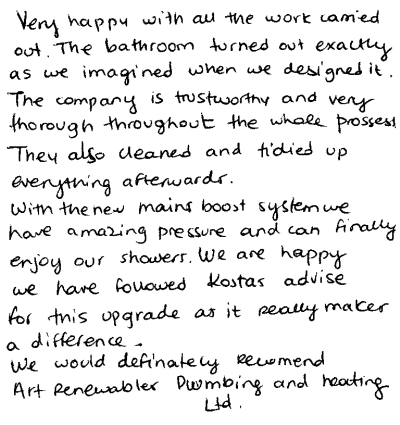 Very happy with all the work carried
out. The bathroom turned out exactly
as we imagined when we designed it.
The company is trustworthy and very
thorough throughout the whole prossess
They also cleaned and tidied up
everything afterwards.
With the new mains boost system we
have amazing pressure and can finally
enjoy our showers. We are happy
we have followed Kostas advise
for this upgrade as it really makes
a difference.
We would definately recomend
Art Renewables Plumbing and heating
Ltd.